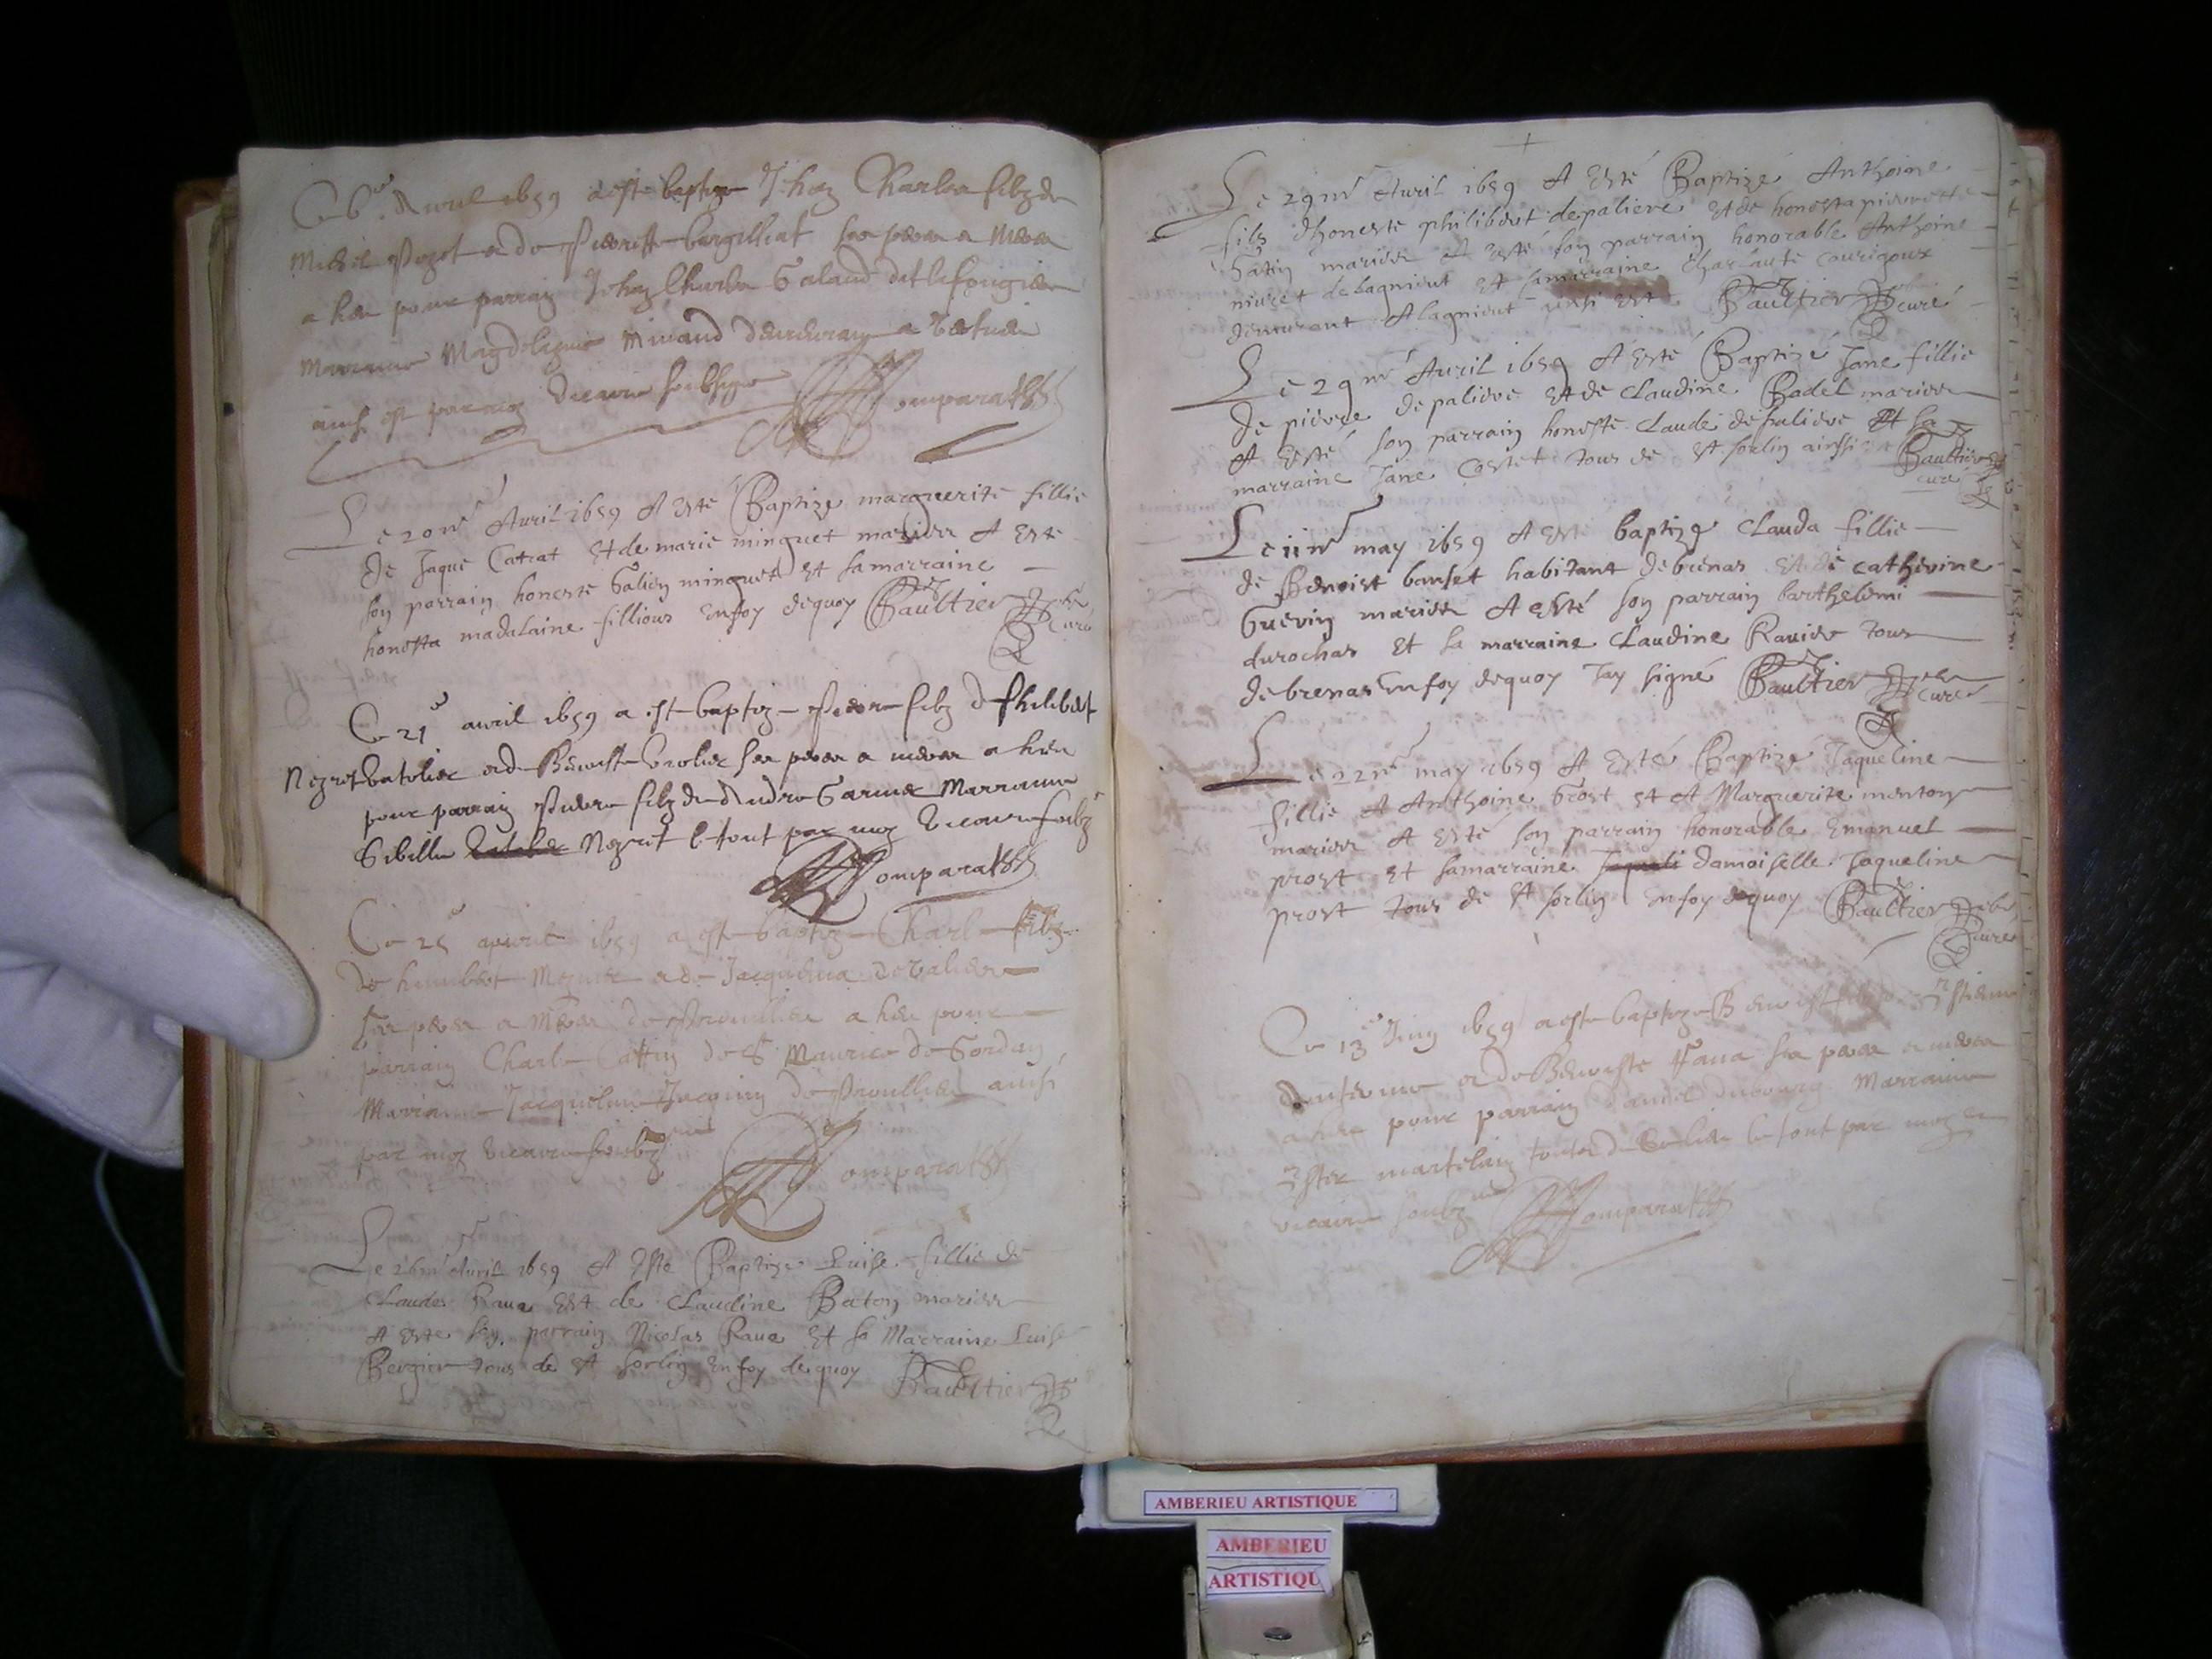 Ce 6e Auril 1659 a esté baptizé Jehan Charles filz de
Michel Pozot a de Pierrette bargilliat ses pere a Mere
a heu pour parrain Jehan Charles Galand dit lesongier
Marraine Magdeleyne Minand
ainsi est par moy vicaire soubsigné Comparat
Le 20me Auril 1659 A Esté Baptizé marguerite fillie
de Jaque Catrat Et de marie minguet mariéz A Esté
son parrain honeste Galien minguet Et sa marraine
honesta madalaine fillioux En foy dequoy Baultier
curé
Ce 21e auril 1659 a est baptizé Pierre filz de Philibert
Negret a de Benoiste ses pere a mere a heu
pour parrain Pierre filz de Andre Garnier Marraine
Sibille Negret le tout par moy vicaire soubz
Comparat
Ce 25 apuril 1659 a est baptizé Charle filz
de humbert a de Jacquema
ses pere a Mere de Proullieu a heu pour
parrain Charle Cattin de St Maurice de Gordan
Marraine Jacqueline Jacquin de Proullieu ainsi
par moy vicaire soubzné
Comparat
Le 26me Auril 1659 A Esté Baptizé Luise fillie de
Claude Raua Est de Claudine Baton mariéz
A Esté son parrain Nicolas Raua Et sa Marraine Luise
Bergier tous de St sorlin En foy de quoy Baultier
Le 29me Auril 1659 A Esté Baptizé Anthoine
filz d'honeste philibert depaliere Et de honesta pierrette
Gatin mariéz A Esté son parrain honorable Anthoine
niuret de lagnieut Et sa marraine
demeurant A lagnieut ainsi Est Baultier curé
Le 29me Auril 1659 A Esté Baptizé Jane fillie
de pierre depaliere Et de Claudine Badel mariéz
A Esté son parrain honeste Claude depaliere Et sa
marraine Jane Costet tous de St sorlin ainssi Baultier
curé
Le 11me may 1659 A Esté baptizé Clauda fillie
de Benoist banset habitant de brenas Et de catherine
Guerin mariéz A Esté son parrain barthelemi
durochas Et sa marraine Claudine Rauier tous
de brenas En foy dequoy Jay signé Baultier
curé
Le 22me may 1659 A Esté Baptizé Jaqueline
fillie A Anthoine Grost Et A Marguerite monton
mariéz A Esté son parrain honorable Emanuel
prost Et sa marraine damoiselle Jaqueline
prost tous de St sorlin En foy dequoy Baultier
curé
Ce 13e Juin 1659 a est baptizé Benoist filz Estienne
a de Benoiste Faua ses pere a mere
a heu pour parrain Daniel dubourg Marraine
Ester martelain le tout par moy
vicaire soubzné Comparat
AMBERIEU ARTISTIQUE
AMBERIEU
ARTISTIQU